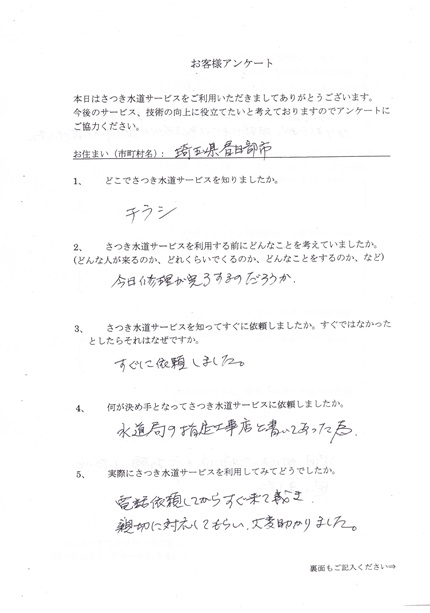 お客様アンケート
本日はさつき水道サービスをご利用いただきましてありがとうございます。
今後のサービス、技術の向上に役立てたいと考えておりますのでアンケートに
ご協力ください。
お住まい（市町村名）： 埼玉県春日部市
1、 どこでさつき水道サービスを知りましたか。
チラシ
2、 さつき水道サービスを利用する前にどんなことを考えていましたか。
(どんな人が来るのか、どれくらいでくるのか、どんなことをするのか、など)
今日修理が完了するのだろうか.
3、 さつき水道サービスを知ってすぐに依頼しましたか。すぐではなかった
としたらそれはなぜですか。
すぐに依頼しました。
4、 何が決め手となってさつき水道サービスに依頼しましたか。
水道局の指定工事店と書いてあった為.
5、 実際にさつき水道サービスを利用してみてどうでしたか。
電話依頼してからすぐ来て頂き.
親切に対応してもらい、大変助かりました。
裏面もご記入ください⇒